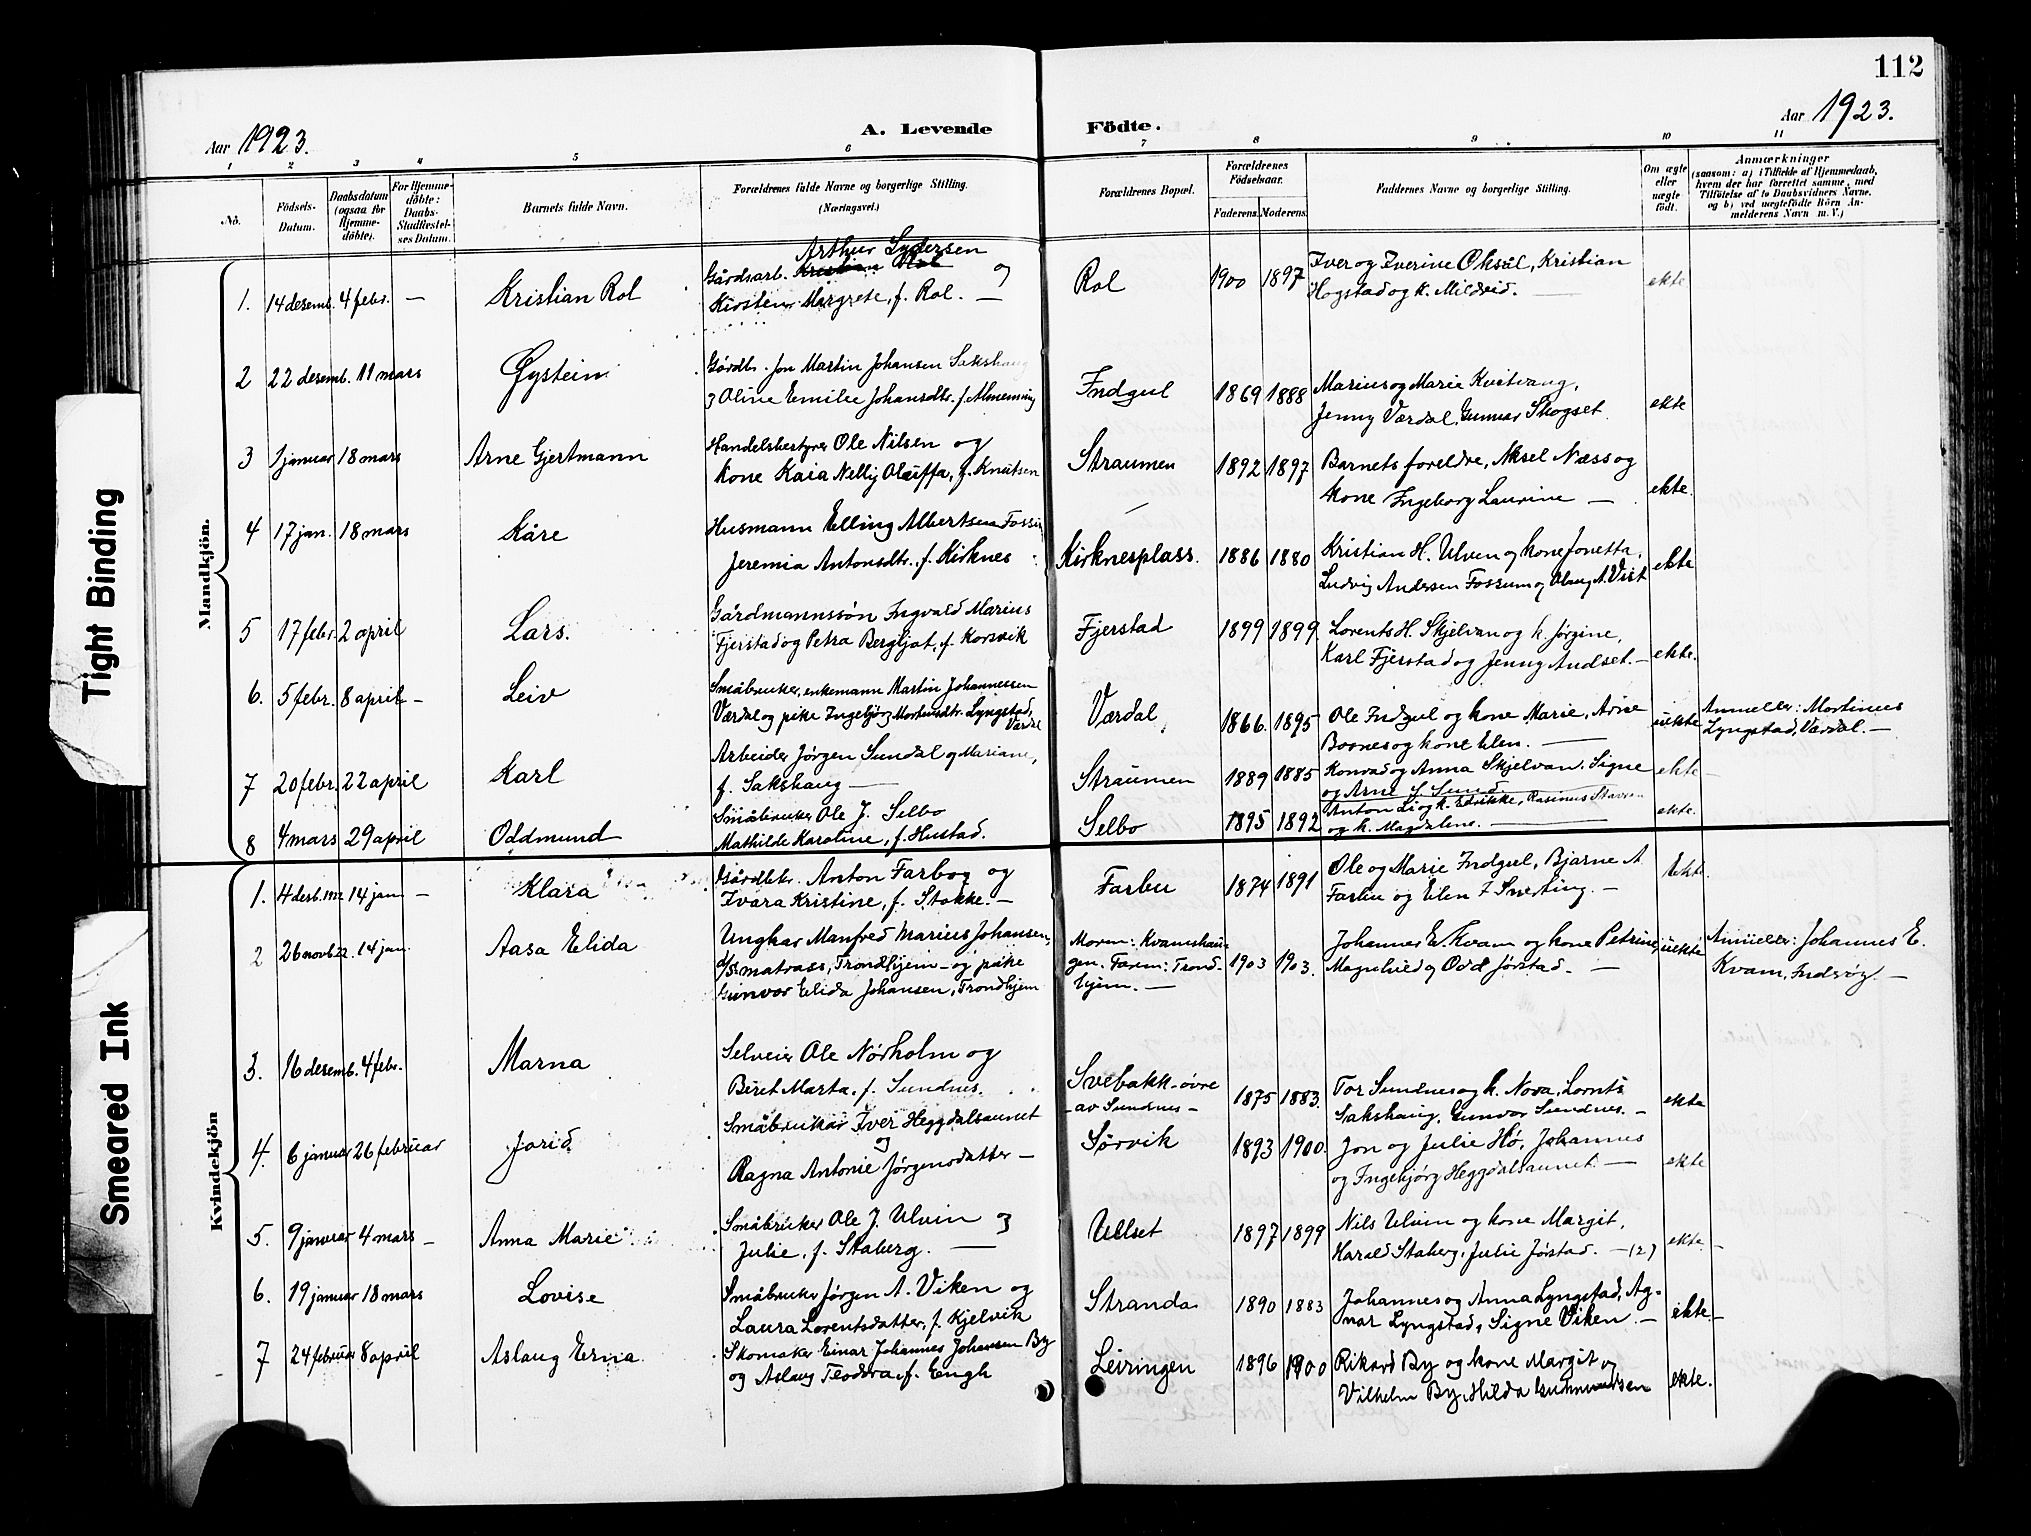 112
Aar 1923.
A. Levende Födte.
Aar 1923.
1 2 3 4 5 6 7 8 9 10 11
Nö.
Födsels-Datum.
Daabsdatum (ogsaa for Hjemme-döbte).
For Hjemme-döbte: Daabs-Stadfestel-ses Datum.
Barnets fulde Navn.
Forældrenes fulde Navne og borgerlige Stilling.
(Næringsvei.)
Forældrenes Bopæl.
Forældrenes Födselsaar.
Faderens. Moderens.
Faddernes Navne og borgerlige Stilling.
Om ægte eller uægte födt.
Anmærkninger
(saasom: a) i Tilfælde af Hjemmedaab,
hvem der har forrettet samme, med
Tilföielse af to Daabsvidners Navne,
og b) ved uægtefödte Börn An-
melderens Navn m. V.)
Mandkjön.
Arthur Lydersen
1. 14 desemb. 4 febr. — Kristian Rol Gårdsarb. Kristian Rol og Rol 1900 1897 Iver og Iverine Oksål, Kristian ekte
Kirsten Margrete, f. Rol. — Hogstad og k. Mildrid. —
2 22 desemb. 11 mars Øystein Gårdbr. Jon Martin Johansen Sakshaug Indgul 1869 1888 Marius og Marie Kvitvang, ekte
og Oline Emilie Johansdtr. f. Almenning Jenny Værdal, Gunnar Skogset.
3 1 januar 18 mars Arne Gjertmann Handelsbestyrer Ole Nilsen og Straumen 1892 1897 Barnets foreldre, Aksel Næss og ekte.
kone Kaia Nelly Oluffa, f. Knutsen kone Ingeborg Laurine —
4 17 jan. 18 mars Kåre Husmann Elling Albertsen Fossum Kirknesplass. 1886 1880 Kristian H. Ulven og kone Jonetta, ekte
Jeremia Antonsdtr. f. Kirknes Ludvig Andersen Fossum og Olaug A. Vist
5 17 febr. 2 april Lars. Gårdmannssøn Ingvald Marius Fjerstad 1899 1899. Lorents H. Skjelvan og k. Jørgine, ekte.
Fjerstad og Petra Bergljot, f. Korsvik Karl Fjerstad og Jenny Andset. —
6. 5 febr. 8 april — Leiv Småbruker, enkemann Martin Johannessen Værdal 1866. 1895 Ole Indgul og kone Marie, Arne uekte Anmelder: Mortinus
Værdal og pike Ingebjørg Mortinusdtr. Lyngstad, Værdal Bosnes og kone Elen. — Lyngstad, Værdal. —
7 20 febr. 22 april Karl Arbeider Jørgen Sundal og Mariane, Straumen 1889 1885 Konrad og Anna Skjelvan, Signe ekte —
f. Sakshaug — og Arne f. Sund.
8 4 mars 29 april Oddmund Småbruker Ole J. Selbo Selbo 1895 1892 Anton Li og k. Edrikke, Rasinus Stavrum ekte.
Mathilde Karoline, f. Hustad. og k. Magdalene. —
Kvindekjön
1. 4 desb. 1922 14 jan. — Klara Gårdbr. Anton Farbog og Farbu 1874 1891 Ole og Marie Indgul, Bjarne A. Ekte.
Ivara Kristine, f. Stokke. — Farbu og Elen f. Snerting. —
2 26 novb. 22. 14 jan. Aasa Elida Ungkar Manfred Marius Johansen, Moren: Kvamshaugen. Faren: Trondhjem. — 1903 1903. Johannes E. Kvam og kone Petrine, uekte Anmelder: Johannes E.
matrass, Trondhjem — og pike Magnhild og Odd Jørstad. — Kvam, Inderøy —
Gunvor Elida Johansen, Trondhjem
3. 16 desemb. 4 febr. Marna Selveier Ole Nørholm og Svebakk-øvre 1875 1883. Tor Sundnes og k. Nora, Lornts ekte
Beret Marta, f. Sundnes. — av Sundnes — Sakshaug, Gunvor Sundnes. —
4. 6 januar 26 februar Jorid Småbruker Iver Heggdalsaunet og Sørvik 1893 1900. Jon og Julie Hø, Johannes ekte
Ragna Antonie Jørgensdatter — og Ingebjørg Heggdalsaunet. —
5. 9 januar 4 mars — Anna Marie Småbruker Ole J. Ulvin og Ullset 1897 1899 Nils Ulvin og kone Margit, ekte. —
Julie, f. Staberg. — Harald Staberg, Julie Jørstad. — (2)
6. 19 januar 18 mars Lovise Småbruker Jørgen A. Viken og Stranda 1890 1883 Johannes og Anna Lyngstad, Ag- ekte. —
Laura Lorentsdatter, f. Kjelvik nar Lyngstad, Signe Viken. —
7 24 februar 8 april Aslaug Erna Skomaker Einar Johannes Johansen By Leiringen 1896 1900 Rikard By og kone Margit og ekte.
og Aslaug Teodora f. Engh Vilhelm By, Hilda Gunnarsen
Tight Binding
Smeared Ink